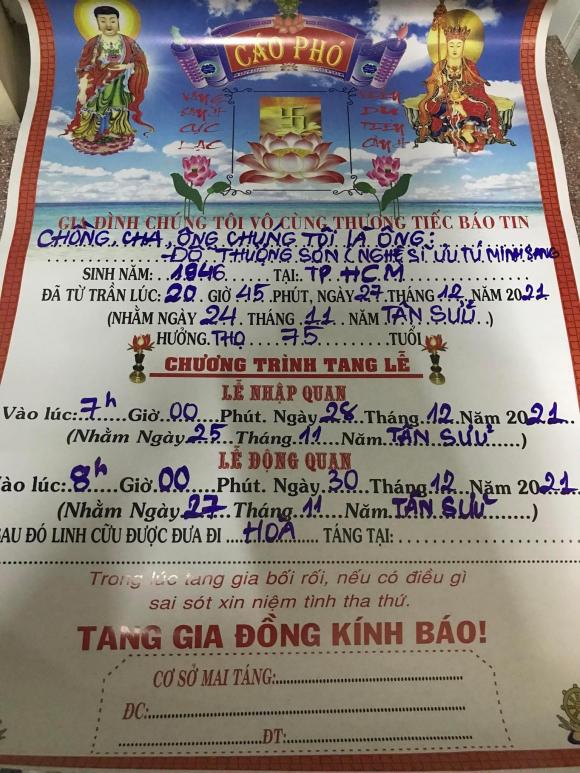 CÁO PHÓ
VÃNG SANH CỰC LẠC
TIÊU DU TIÊN CẢNH
GIA ĐÌNH CHÚNG TÔI VÔ CÙNG THƯƠNG TIẾC BÁO TIN
CHỒNG, CHA, ÔNG CHÚNG TÔI LÀ ÔNG:
-ĐỖ THƯỢNG SƠN (NGHỆ SĨ ƯU TÚ MINH SANG
SINH NĂM: 1946 TẠI: TP.HCM
ĐÃ TỪ TRẦN LÚC: 20 GIỜ 45 PHÚT, NGÀY 27 THÁNG 12 NĂM 2021
(NHẰM NGÀY 24 THÁNG 11 NĂM TÂN SỬU)
HƯỞNG THỌ 75 TUỔI
CHƯƠNG TRÌNH TANG LỄ
LỄ NHẬP QUAN
Vào lúc: 7h Giờ 00 Phút. Ngày 28 Tháng 12 Năm 2021
(Nhằm Ngày 25 Tháng 11 Năm TÂN SỬU)
LỄ ĐỘNG QUAN
Vào lúc: 8h Giờ 00 Phút. Ngày 30 Tháng 12 Năm 2021
(Nhằm Ngày 27 Tháng 11 Năm TÂN SỬU)
SAU ĐÓ LINH CỮU ĐƯỢC ĐƯA ĐI HOẢ TÁNG TẠI:
Trong lúc tang gia bối rối, nếu có điều gì
sai sót xin niệm tình tha thứ.
TANG GIA ĐỒNG KÍNH BÁO!
CƠ SỞ MAI TÁNG:
ĐC:
ĐT: